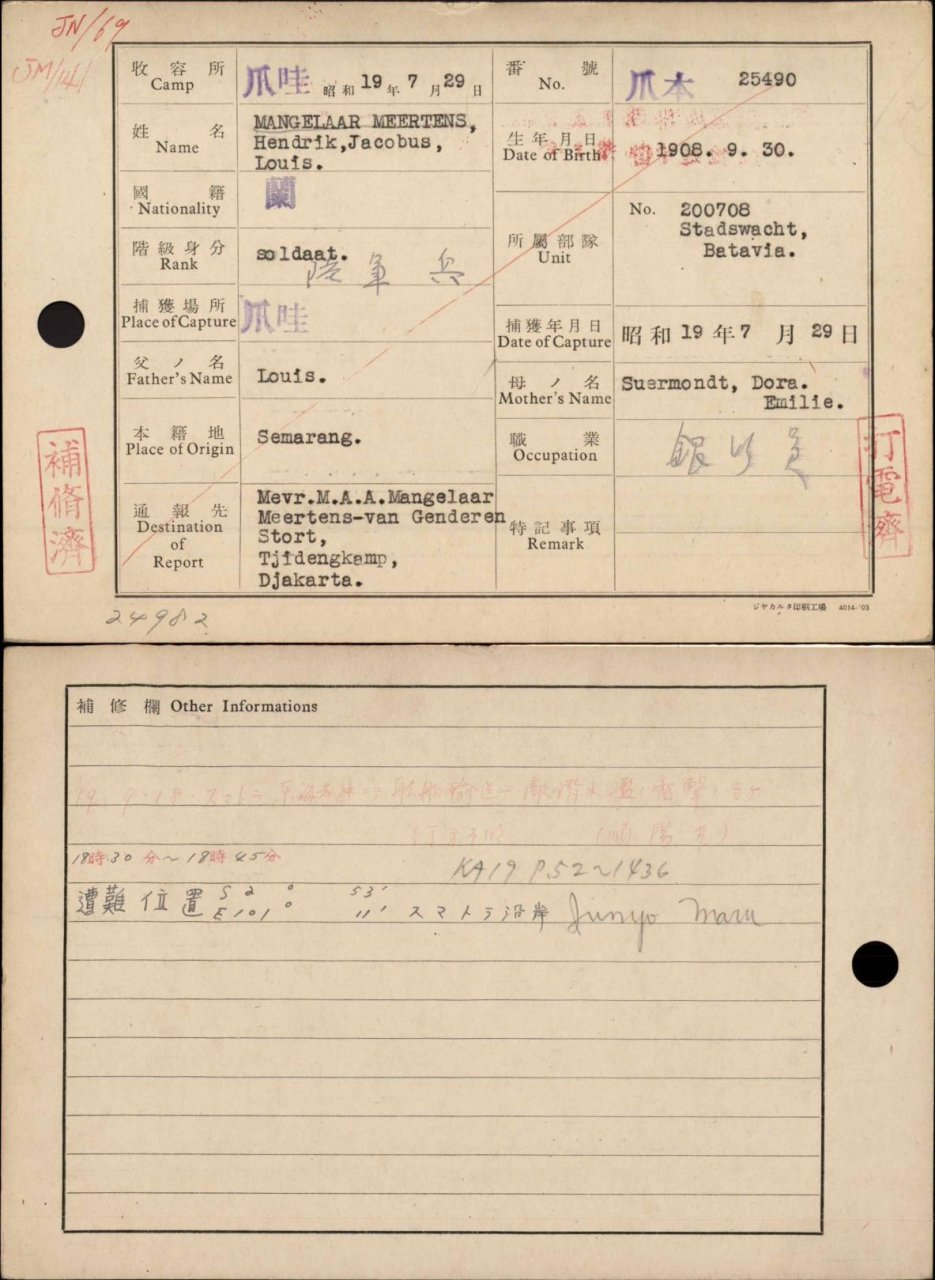 JN/69
JM/141
收容所
Camp
爪哇 昭和19年7月29日
番號
No.
爪本 25490
姓名
Name
MANGELAAR MEERTENS,
Hendrik,Jacobus,
Louis.
生年月日
Date of Birth
1908. 9. 30.
國籍
Nationality
蘭
所屬部隊
Unit
No. 200708
Stadswacht,
Batavia.
階級身分
Rank
soldaat.
陸軍 兵
捕獲場所
Place of Capture
爪哇
捕獲年月日
Date of Capture
昭和19年7月29日
父ノ名
Father's Name
Louis.
母ノ名
Mother's Name
Suermondt, Dora.
Emilie.
本籍地
Place of Origin
Semarang.
職業
Occupation
銀行員
通報先
Destination
of
Report
Mevr.M.A.A.Mangelaar
Meertens-van Genderen
Stort,
Tjidengkamp,
Djakarta.
特記事項
Remark
補脩濟
打電濟
24982
ジヤカルタ印刷工場 4014-'03
補修欄 Other Informations
19.9.18.スマトラ
船舶輸送 敵潜水艦 雷撃
(順陽丸)
18時30分~18時45分
KA19 P.52~1436
遭難位置 S 2° 53'
E 101° 11' スマトラ沿岸 Junyo Maru